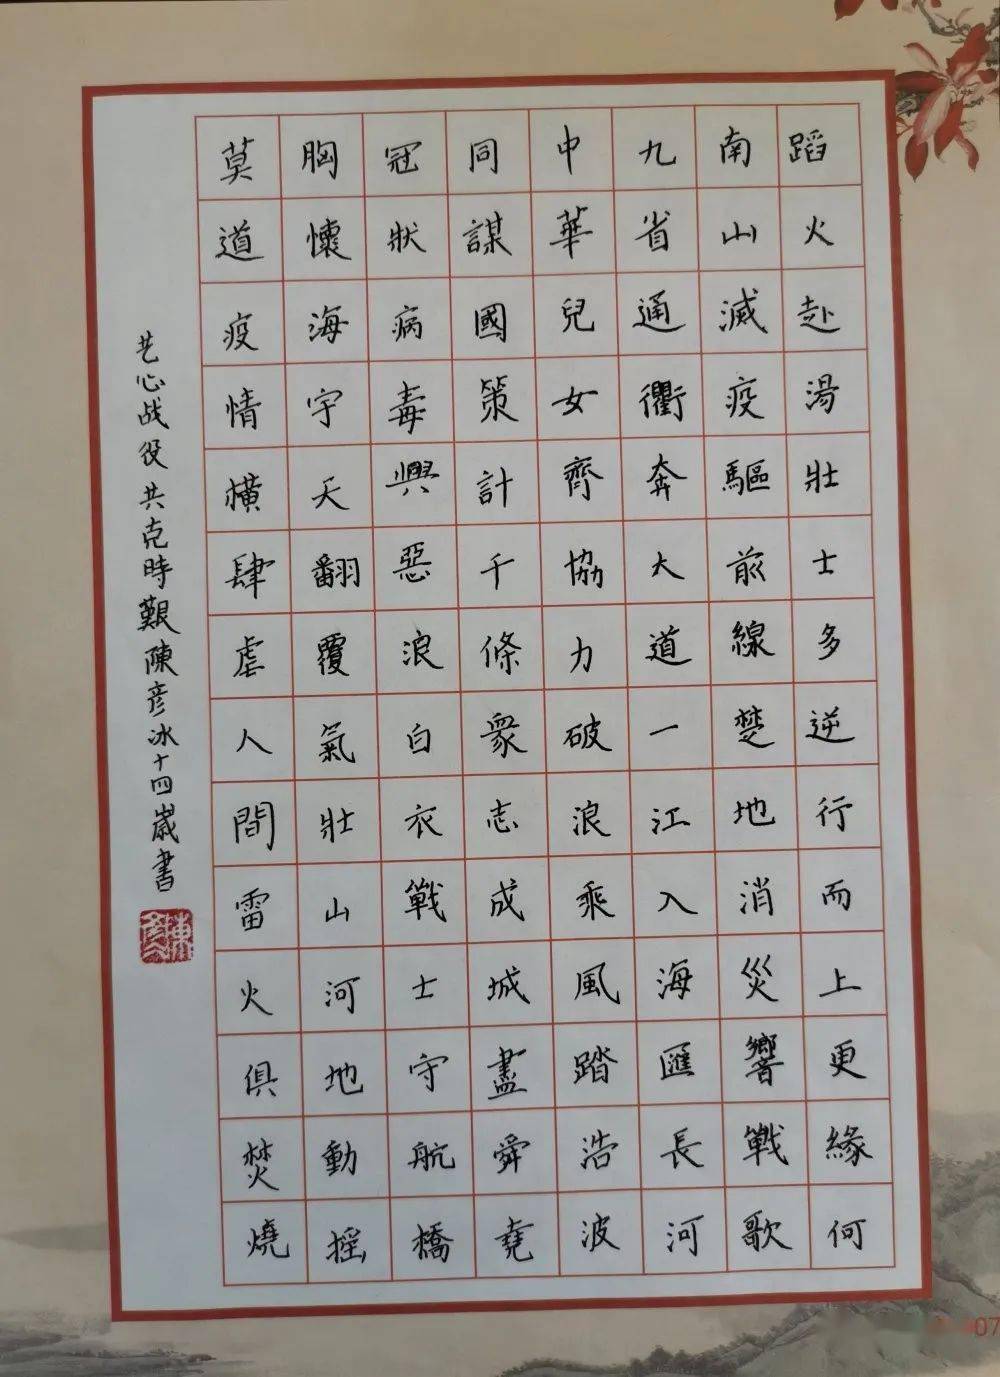 蹈火赴湯壯士多逆行而上更緣何
南山滅疫驅前線楚地消災響戰歌
九省通衢奔大道一江入海匯長河
中華兒女齊協力破浪乘風踏浩波
同謀國策計千條眾志成城盡舜堯
冠狀病毒興惡浪白衣戰士守航橋
胸懷海宇天翻覆氣壯山河地動摇
莫道疫情横肆虐人間雷火俱焚燒
艺心战役共克時艱陳彦冰十四歲書
07